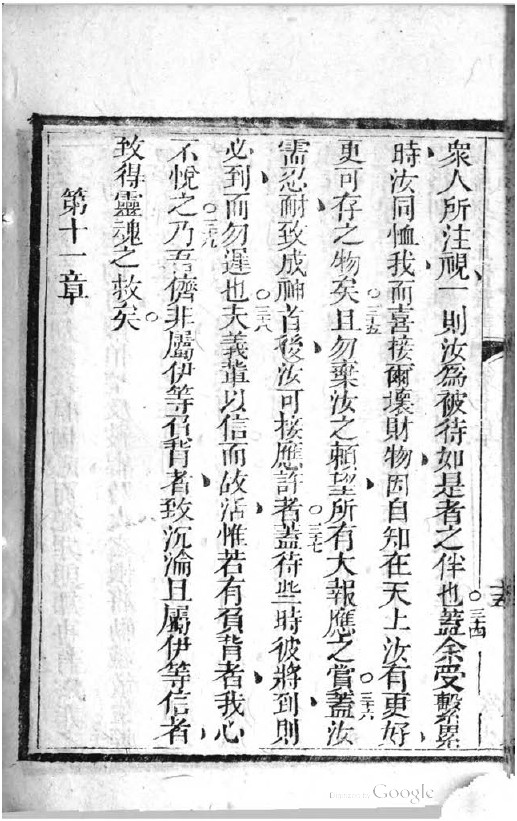 衆人所注視、一則汝為被待如是者之伴也。三十四蓋余受繫累
時、汝同恤我而喜接爾壞財物、因自知在天上汝有更好、
更可存之物矣。三十五且勿棄汝之賴望、所有大報應之賞。三十六蓋汝
需忍耐、致成神旨後、汝可接應許者。三十七蓋待些時、彼將到、則
必到而勿遲也。三十八夫義輩以信而故活、惟若有負背者、我心
不悅之。三十九乃吾儕非屬伊等負背者、致沉淪、且屬伊等信者、
致得靈魂之救矣。
第十一章
十五
Digitized by Google